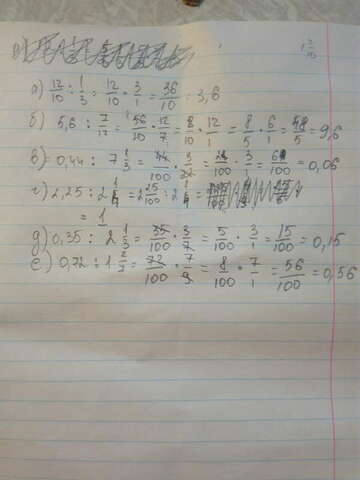 1 2/10
а) 12/10 : 1/3 = 12/10 · 3/1 = 36/10 = 3,6
б) 5,6 : 7/12 = 56/10 · 12/7 = 8/10 · 12/1 = 8/5 · 6/1 = 48/5 = 9,6
в) 0,44 : 7 1/3 = 44/100 · 3/22 = 2/100 · 3/1 = 6/100 = 0,06
г) 2,25 : 2 1/4 = 2 25/100 : 2 1/4 =
= 1
д) 0,35 : 2 1/3 = 35/100 · 3/7 = 5/100 · 3/1 = 15/100 = 0,15
е) 0,72 : 1 2/7 = 72/100 · 7/9 = 8/100 · 7/1 = 56/100 = 0,56